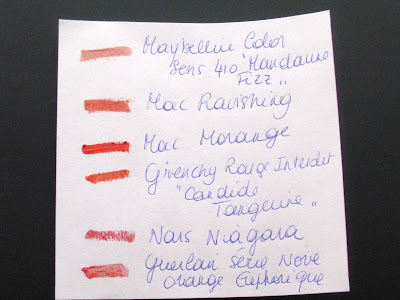 Maybelline Color
Sens 410 "Mandarine
Fizz „
Mac Ravishing
Mac Morange
Givenchy Rouge Interdit
"Candide
Tangerine „
Nars Niagara
Guerlain Série Noire
Orange Euphorique